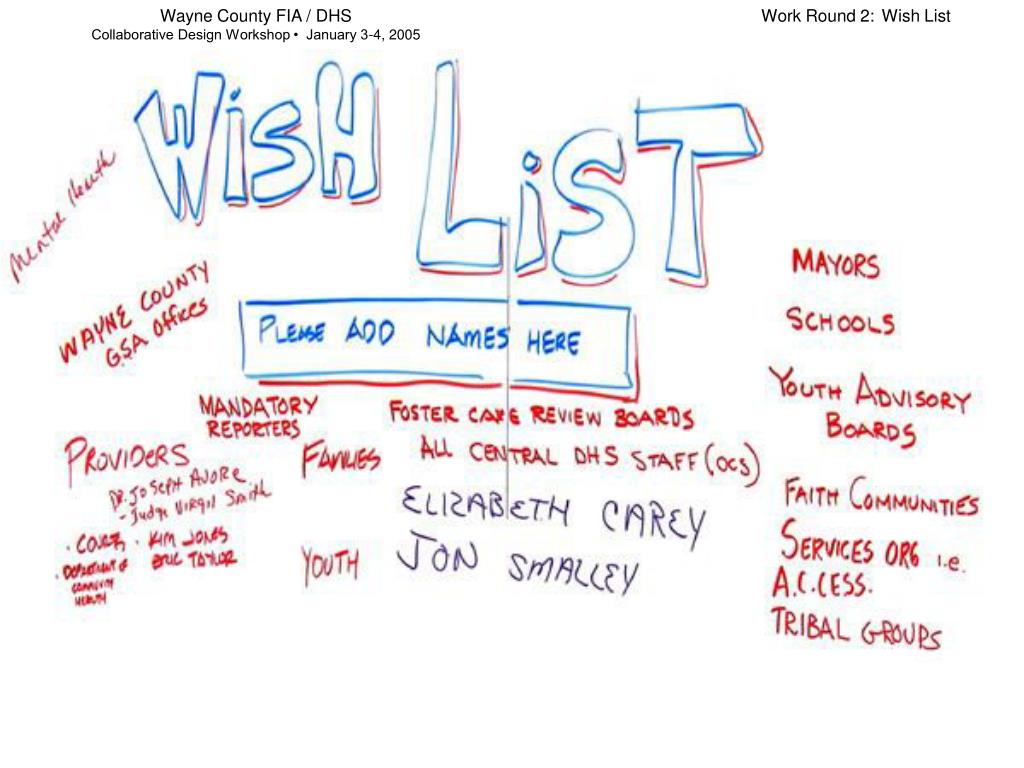 Wayne County FIA / DHS
Collaborative Design Workshop • January 3-4, 2005
Work Round 2: Wish List
WisH
LiST
Mental Health
WAYNE COUNTY
GSA Offices
PLEASE ADD NAMES HERE
MANDATORY
REPORTERS
PROVIDERS
DR. JOSEPH
- Judge Virgil Smith
• COURTS
• KIM JONES
ERIC TAYLOR
• DEPARTMENT OF
COMMUNITY
HEALTH
FAMILIES
YOUTH
FOSTER CARE REVIEW BOARDS
ALL CENTRAL DHS STAFF (OCS)
ELIZABETH CAREY
JON SMALLEY
MAYORS
SCHOOLS
YOUTH ADVISORY
BOARDS
FAITH COMMUNITIES
SERVICES ORG i.e.
A.C.CESS.
TRIBAL GROUPS